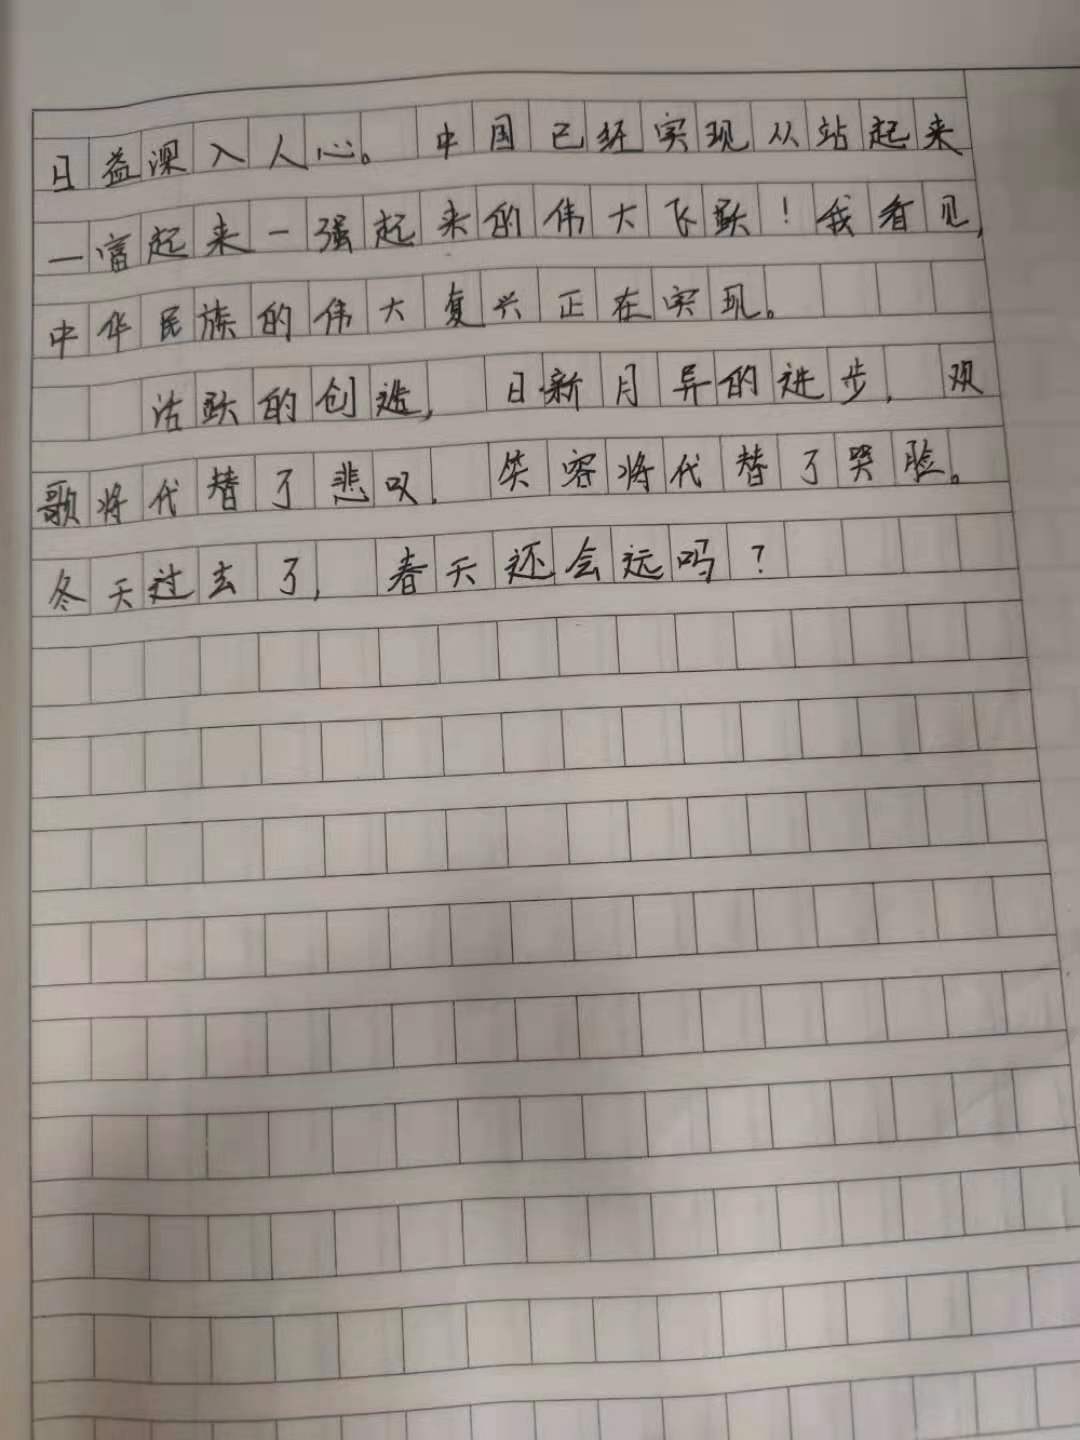 日益深入人心。中国已经实现从站起来
一富起来一强起来的伟大飞跃！我看见,
中华民族的伟大复兴正在实现。
活跃的创造,日新月异的进步,欢
歌将代替了悲叹,笑容将代替了哭脸。
冬天过去了,春天还会远吗?